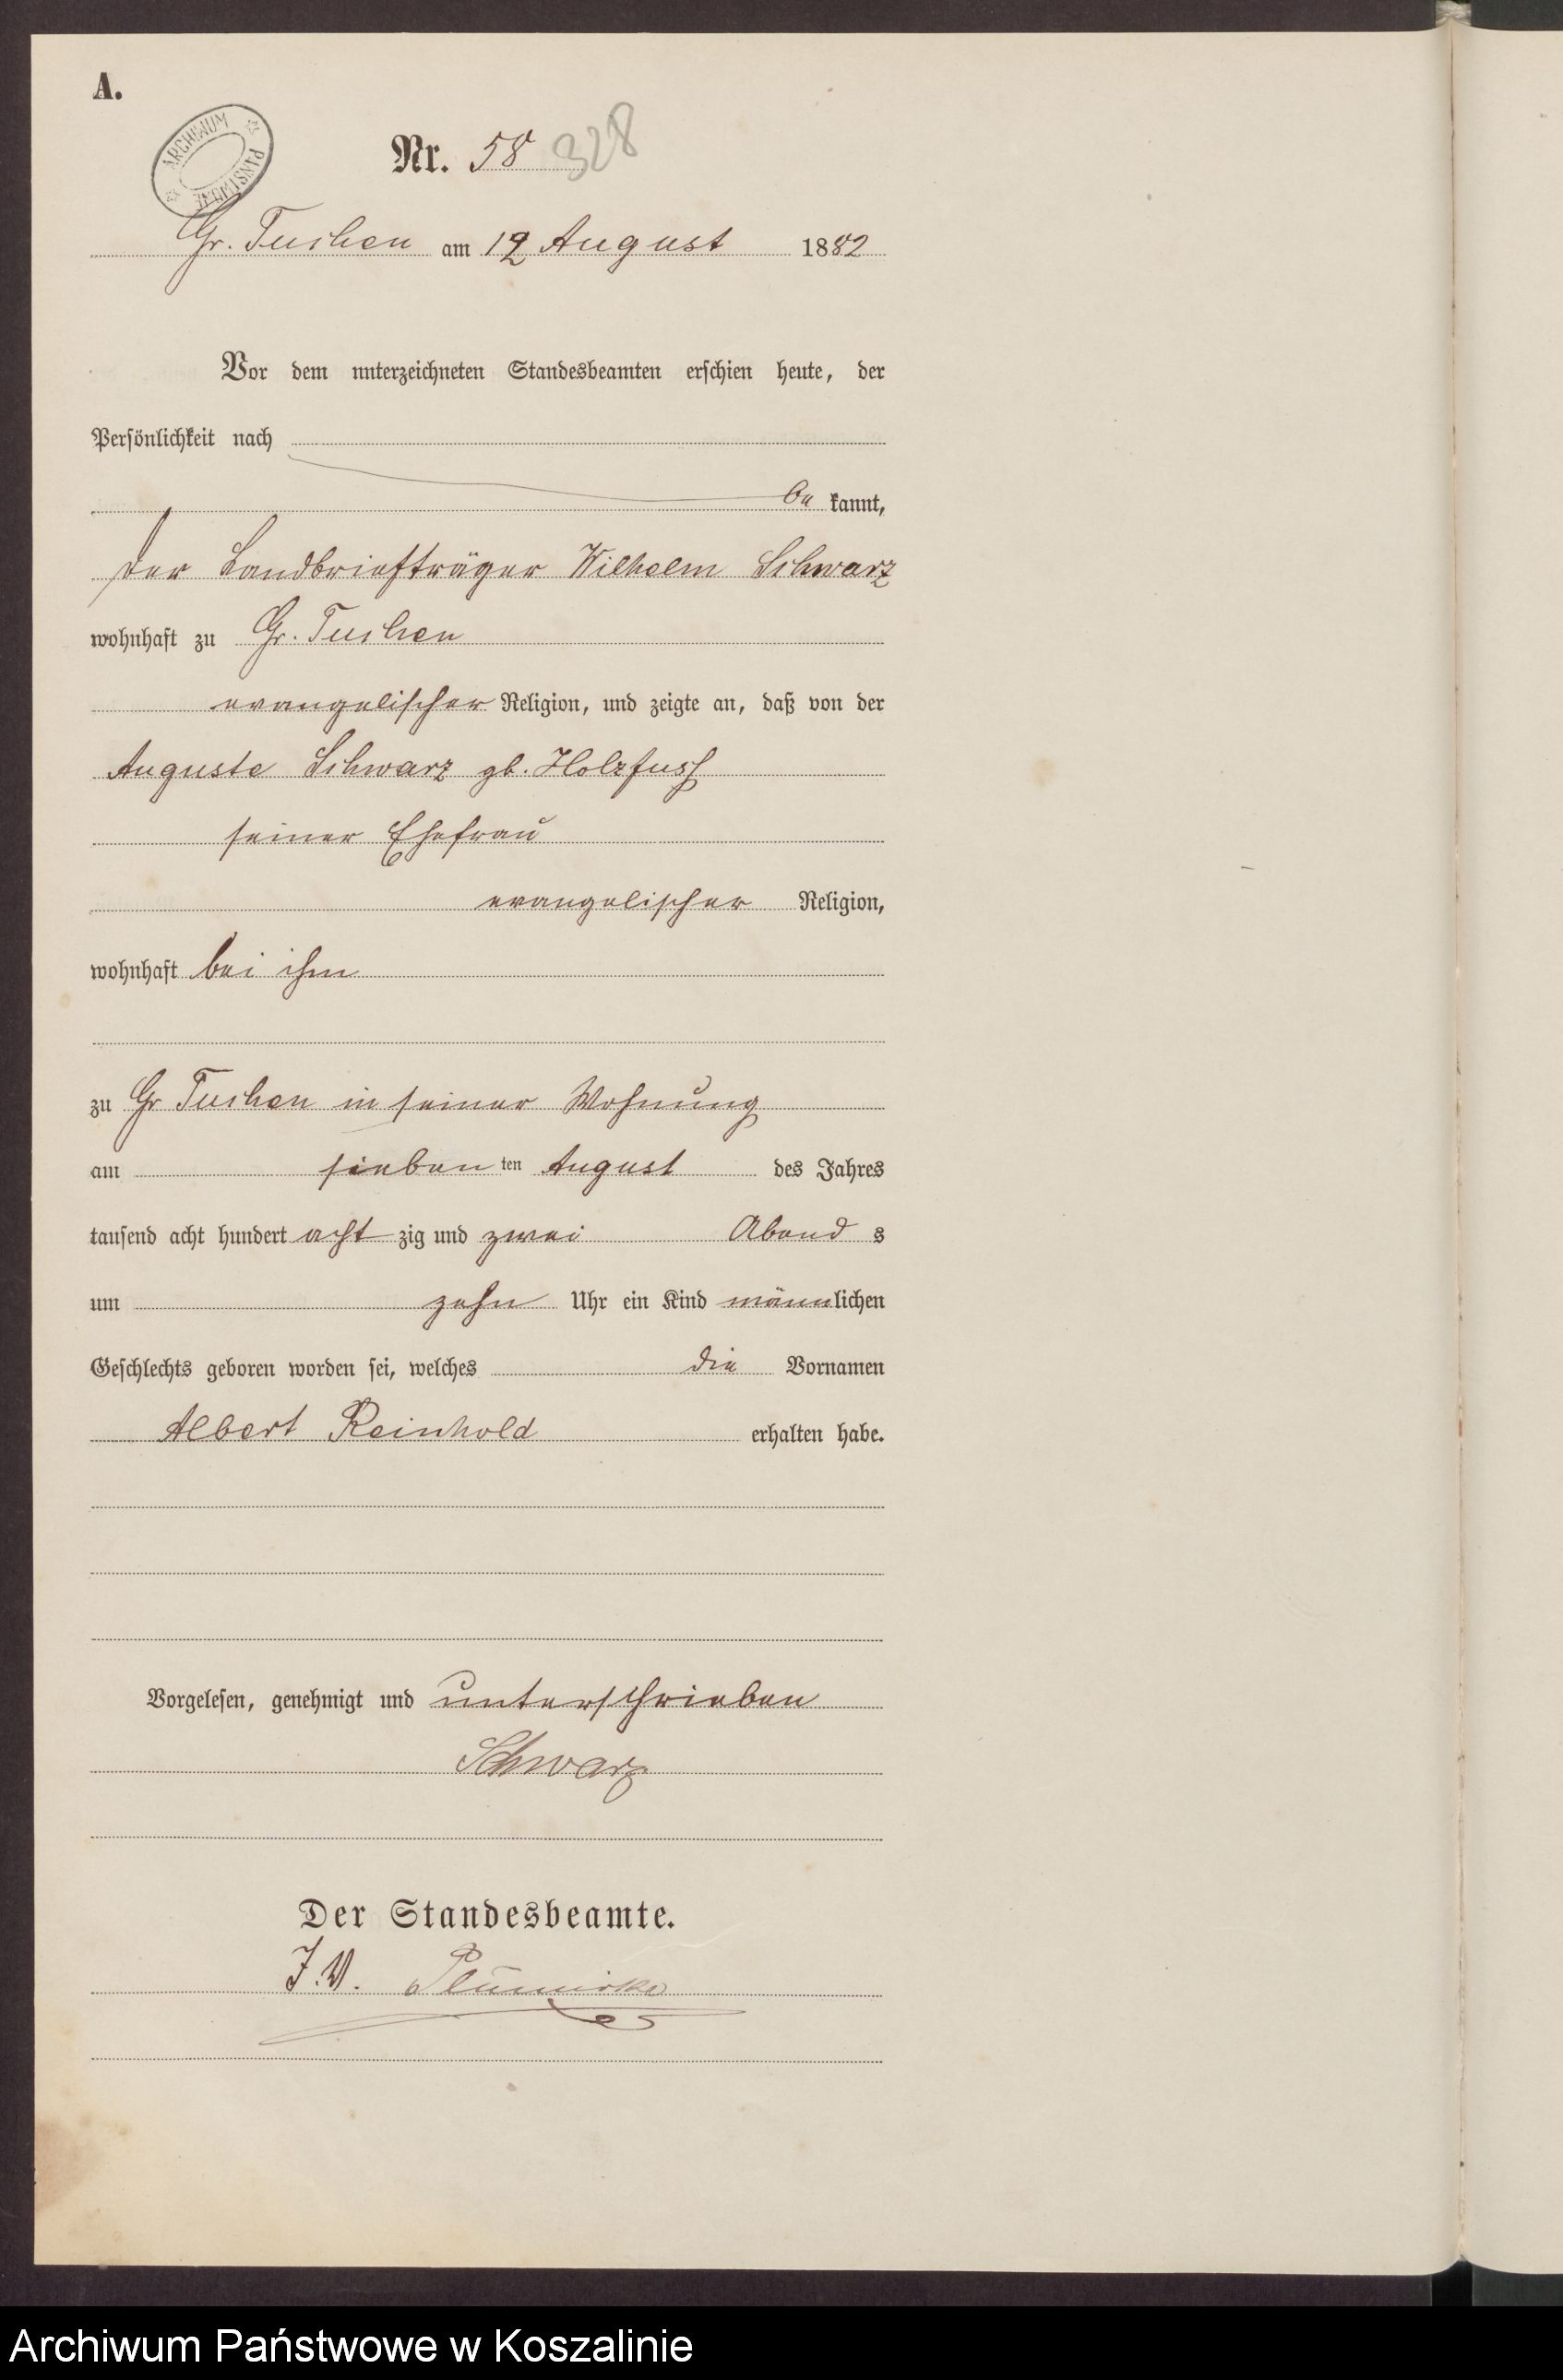 A.
ARCHIWUM PAŃSTWOWE
Nr. 58 328
Gr. Tuchen am 12 August 1882
Vor dem unterzeichneten Standesbeamten erschien heute, der
Persönlichkeit nach
be kannt,
der Landbriefträger Wilhelm Schwarz
wohnhaft zu Gr. Tuchen
evangelischer Religion, und zeigte an, daß von der
Auguste Schwarz gb. Holzfuss
seiner Ehefrau
evangelischer Religion,
wohnhaft bei ihm
zu Gr Tuchen in seiner Wohnung
am sieben ten August des Jahres
tausend acht hundert acht zig und zwei Abend s
um zehn Uhr ein Kind männlichen
Geschlechts geboren worden sei, welches die Vornamen
Albert Reinhold erhalten habe.
Vorgelesen, genehmigt und unterschrieben
Schwarz
Der Standesbeamte.
J. V.
Archiwum Państwowe w Koszalinie